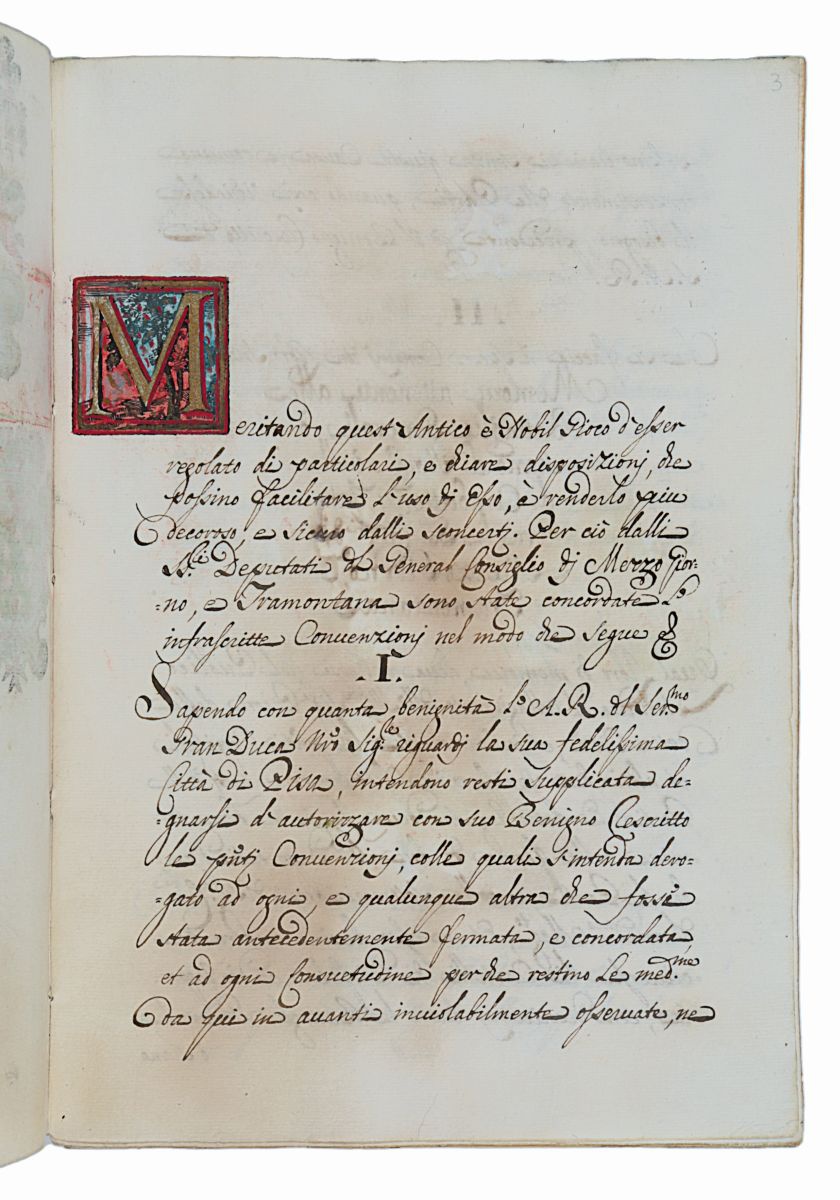 3
Meritando quest'Antico è Nobil Gioco d'esser
regolato di particolari, e chiare disposizionj, che
possino facilitare l'uso dj Esso, è renderlo piu
decoroso, e sicuro dalli sconcertj. Per ciò dalli
SS.ri Deputati del General Consiglio dj Mezzo Gior-
=no, e Tramontana sono state concordate le
infrascritte Convenzionj nel modo che segue
.I.
Sapendo con quanta benignità l'A.R. del Ser.mo
Gran Duca Nro Sig.re riguardj la sua fedelissima
Città di Pisa, intendono resti supplicata de-
=gnarsi d'autorizzare con suo Benigno Rescritto
le pntj Convenzionj, colle quali s'intenda dero-
=gato ad ogni, e qualunque altra che fosse
stata antecedentemente fermata, e concordata,
et ad ogni Consuetudine perche restino le med.me
da qui in avanti inviolabilmente osservate, ne